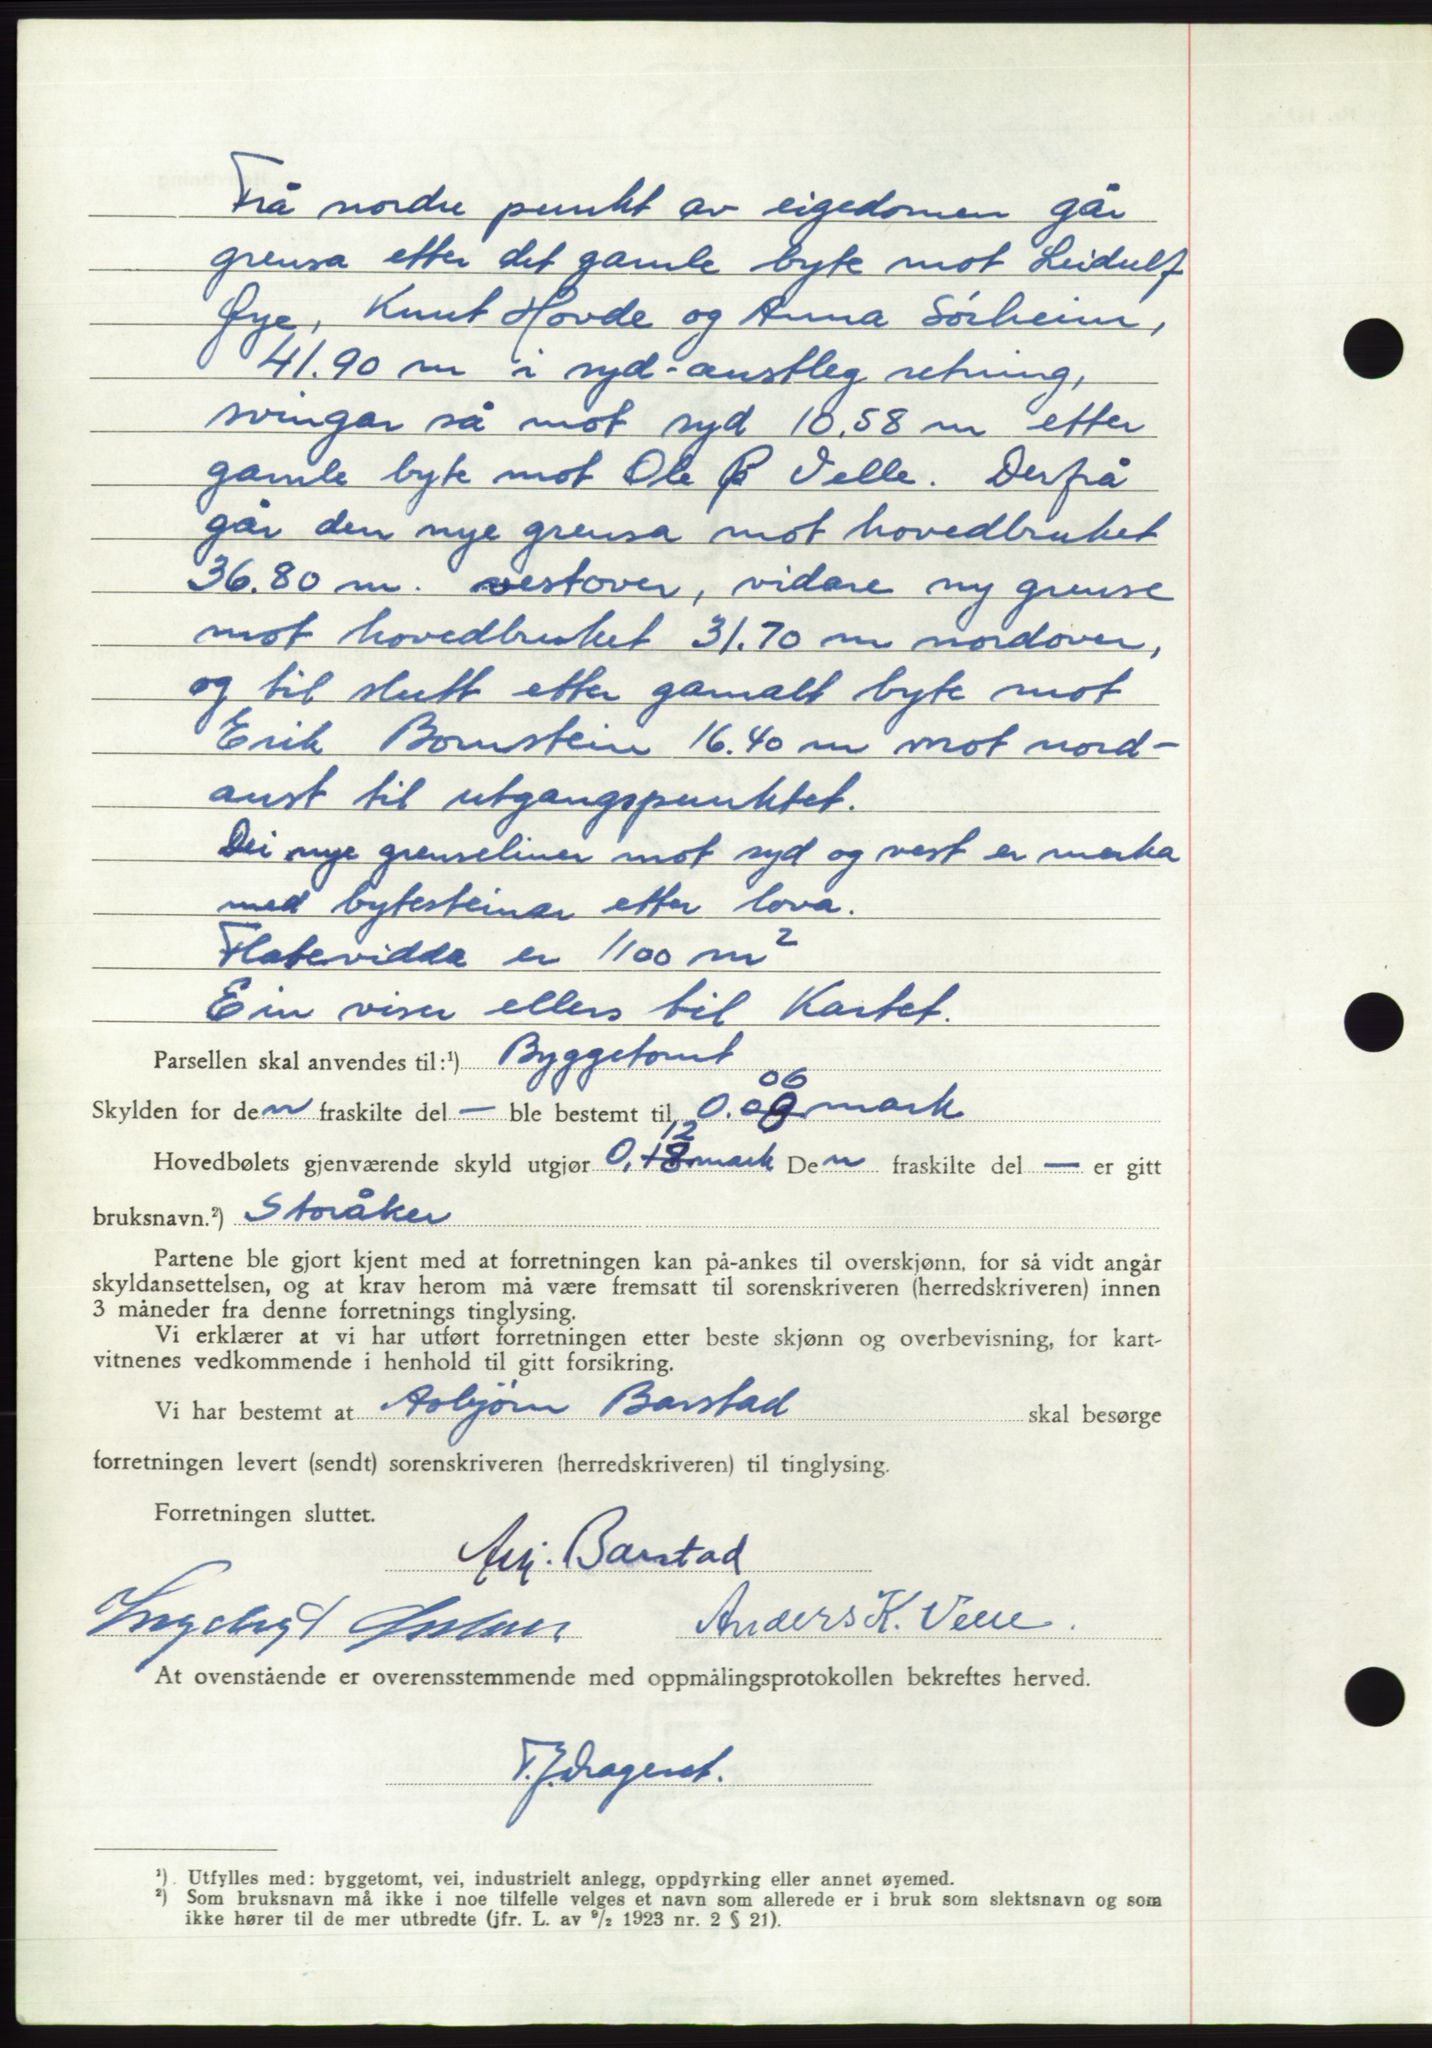 Frå nordre punkt av eigedomen går
grensa etter det gamle byte mot Leidulf
Øye, Knut Hovde og Anna Sørheim,
41.90 m i syd-austleg retning,
svingar så mot syd 10.58 m etter
gamle byte mot Ole P Velle. Derfrå
går den nye grensa mot hovedbruket
36.80 m. vestover, vidare ny grense
mot hovedbruket 31.70 m nordover,
og til slutt etter gamalt byte mot
Erik Bornstein 16.40 m mot nord-
aust til utgangspunktet.
Dei nye grenseliner mot syd og vest er merka
med bytesteinar etter lova.
Flatevidda er 1100 m²
Ein viser ellers til Kartet.
Parsellen skal anvendes til:¹) Byggetomt
06
Skylden for den fraskilte del — ble bestemt til 0.08 mark
12
Hovedbølets gjenværende skyld utgjør 0,18 mark Den fraskilte del — er gitt
bruksnavn.²) Storåker
Partene ble gjort kjent med at forretningen kan på-ankes til overskjønn, for så vidt angår
skyldansettelsen, og at krav herom må være fremsatt til sorenskriveren (herredskriveren) innen
3 måneder fra denne forretnings tinglysing.
Vi erklærer at vi har utført forretningen etter beste skjønn og overbevisning, for kart-
vitnenes vedkommende i henhold til gitt forsikring.
Vi har bestemt at Asbjørn Barstad skal besørge
forretningen levert (sendt) sorenskriveren (herredskriveren) til tinglysing.
Forretningen sluttet.
Asbj. Barstad
Anders K. Velle.
At ovenstående er overensstemmende med oppmålingsprotokollen bekreftes herved.
T.J. Drageset.
¹). Utfylles med: byggetomt, vei, industrielt anlegg, oppdyrking eller annet øyemed.
²) Som bruksnavn må ikke i noe tilfelle velges et navn som allerede er i bruk som slektsnavn og som
ikke hører til de mer utbredte (jfr. L. av ⁹/₂ 1923 nr. 2 § 21).